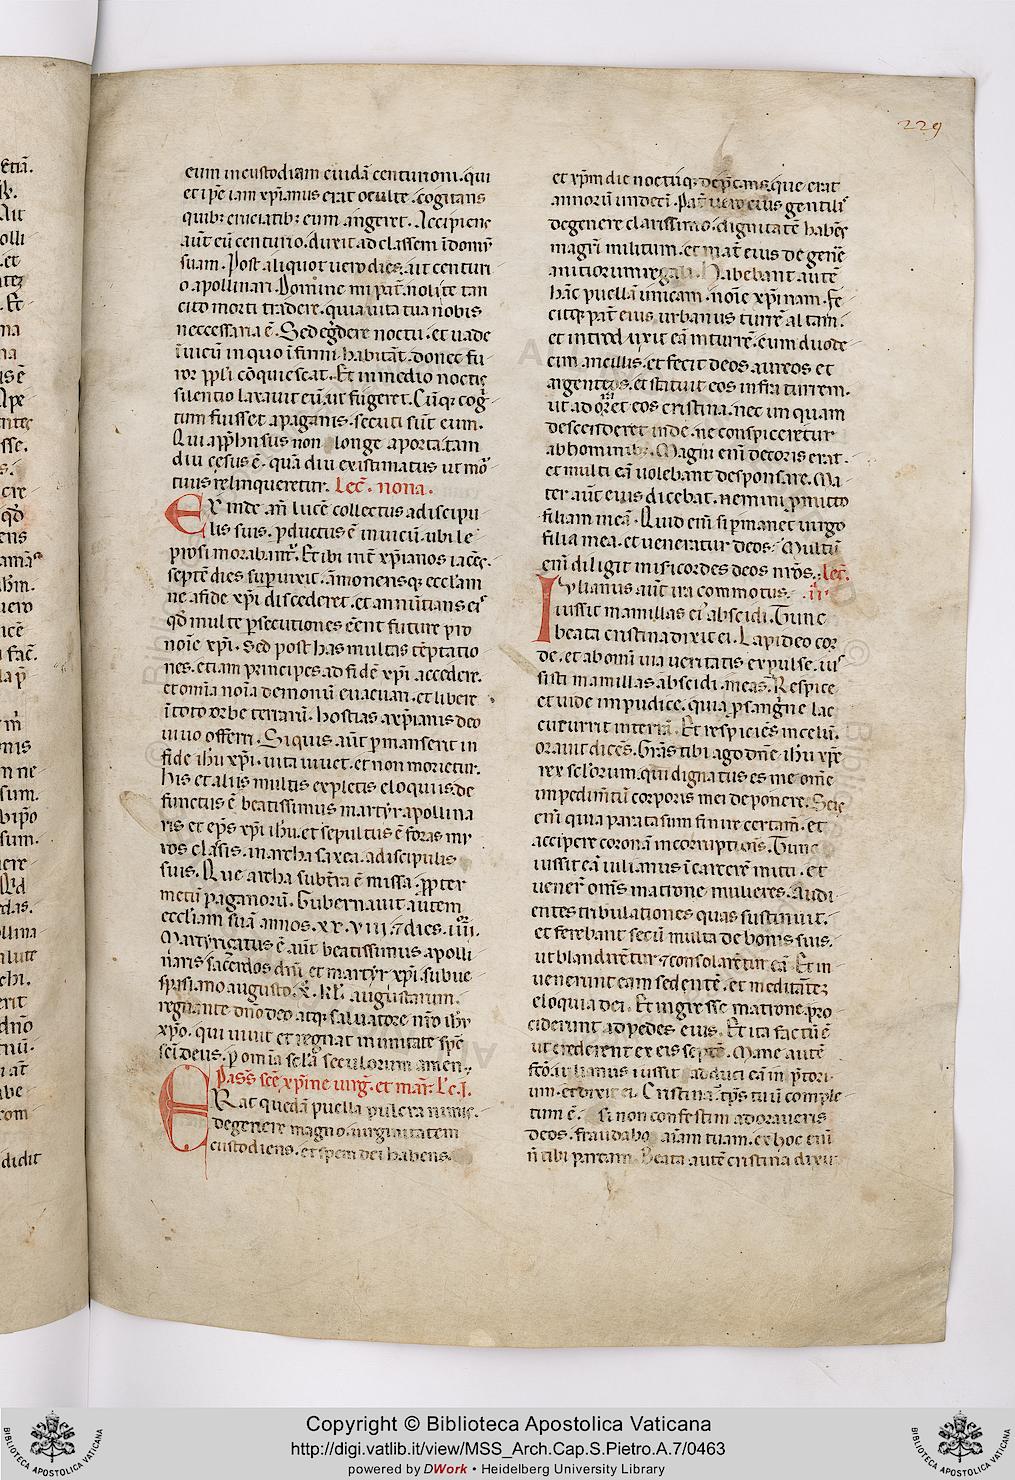 229
eum in custodiam cuidā centurioni. qui
et ip̄e iam xp̄ianus erat oculte. cogitans
quibꝫ cruciatibꝫ eum angeret. Accipiens
aūt eū centurio. duxit ad classem ī domū
suam. Post aliquot uero dies. ait centuri
o apollinari. Domine mi pat̄. nolite tam
cito morti tradere. quia uita tua nobis
neccessaria ē. Sed egredere noctu. et uade
ī uicū in quo īfirmi habitāt. donec fu
ror pp̄li cōquiescat. Et in medio noctis
silentio laxauit eū. ut fugeret. Cūqꝫ coḡ
tum fuisset a paganis. secuti sūt eum.
Qui app̄hensus non longe a porta. tam
diu cesus ē. quādiu existimatus ut mō
tuus relinqueretur. Lec̄. nona.
Ex inde añ lucē collectus a discipu
lis suis. ꝑductus ē in uicū. ubi le
prosi morabant̄. Et ibi int̄ xp̄ianos iacēs.
septē dies suꝑuixit. āmonensqꝫ ecclam
ne a fide xp̄i discederet. et annūtians eis
qd̄ multe ꝑsecutiones eēnt future pro
noīe xp̄i. Sed post has multas tēptatio
nes. etiam principes ad fidē xp̄i accedere.
et omīa noīa demonū euacuari. et libere
ī toto orbe terrarū. hostias a xp̄ianis deo
uiuo offerri. Si quis aūt ꝑmanserit in
fide ihū xp̄i. uita uiuet. et non morietur.
his et aliis multis expletis eloquiis. de
functus ē beatissimus martyr apollina
ris et ep̄s xp̄i ihū. et sepultus ē foras mu
ros clasis. in archa saxea. a discipulis
suis. Que archa subt̄ra ē missa. ꝓpter
metū paganorū. Gubernauit autem
eccliam suā annos. xx.viii. ⁊ dies. iiii.
Martyrizatus ē aūt beatissimus apolli
naris sacerdos dn̄i et martyr xp̄i. sub ue
spasiano augusto. x. kl̄. augustarum.
regnante dn̄o deo atqꝫ saluatore nr̄o ihū
xp̄o. qui uiuit et regnat in unitate sp̄c
sc̄i deus. ꝑ omīa sc̄la seculorum amen.
Pass̄ sc̄e xp̄ine uirḡ. et mar̄. Lc̄.I.
ERat quedā puella pulcra nimis.
de genere magno. uirginitatem
custodiens. et spem dei habens.
et xp̄m die noctuqꝫ dep̄cans. que erat
annorū undeci. Pat̄ uero eius gentilis
de genere clarissimo. dignitatē habēs
magr̄i militum. et mat̄ eius de gen̄e
anitiorum regali. Habebant autē
hāc puellā unicam. noīe xp̄inam. Fe
citqꝫ pat̄ eius urbanus turrē altam.
et introduxit eā in turrē. cum duode
cim ancillis. et fecit deos aureos et
argenteos. et statuit eos infra turrem.
ut adoraret eos cristina. nec umquam
descenderet inde. ne conspiceretur
ab hominibꝫ. Magni enī decoris erat.
et multi eā uolebant desponsare. Ma
ter aūt eius dicebat. nemini ꝓmitto
filiam meā. Quid enī si ꝑmanet uirgo
filia mea. et ueneratur deos. Multū
enī diligit misericordes deos nr̄os. Lec̄.
Iulianus aūt ira commotus. ii.
iussit mamillas ei abscidi. Tunc
beata cristina dixit ei. Lapideo cor
de. et ab omī uia ueritatis expulse. ius
sisti mamillas abscidi meas. Respice
et uide impudice. quia ꝑ sangine lac
cucurrit in terrā. Et respiciēs in celū.
orauit dicēs. Grās tibi ago dn̄e ihū xp̄e
rex sclorum. qui dignatus es me om̄e
impedimtū corporis mei deponere. Scis
enī quia parata sum finire certam̄. et
accipere coronā incorruptiōis. Tunc
iussit eā iulianus ī carcerē mitti. et
uener̄ om̄s matrone mulieres. Audi
entes tribulationes quas sustinuit.
et ferebant secū multa de bonis suis.
ut blandirētur ⁊ consolarētur eā. Et in
uenerunt eam sedentē. et meditātē
eloquia dei. Et ingresse matrone. pro
ciderunt ad pedes eius. Et ita factū ē
ut crederent ex eis septē. Mane autē
fc̄o. iulianus iussit adduci eā in p̄tori
um. et dixit ei. Cristina. tp̄s tuū comple
tum ē. si non confestim adoraueris
deos. fraudabo aīam tuam. ex hoc enī
n̄ tibi parcam. Beata autē cristina dixit
Copyright © Biblioteca Apostolica Vaticana
http://digi.vatlib.it/view/MSS_Arch.Cap.S.Pietro.A.7/0463
powered by DWork • Heidelberg University Library
BIBLIOTECA APOSTOLICA VATICANA
BIBLIOTECA APOSTOLICA VATICANA